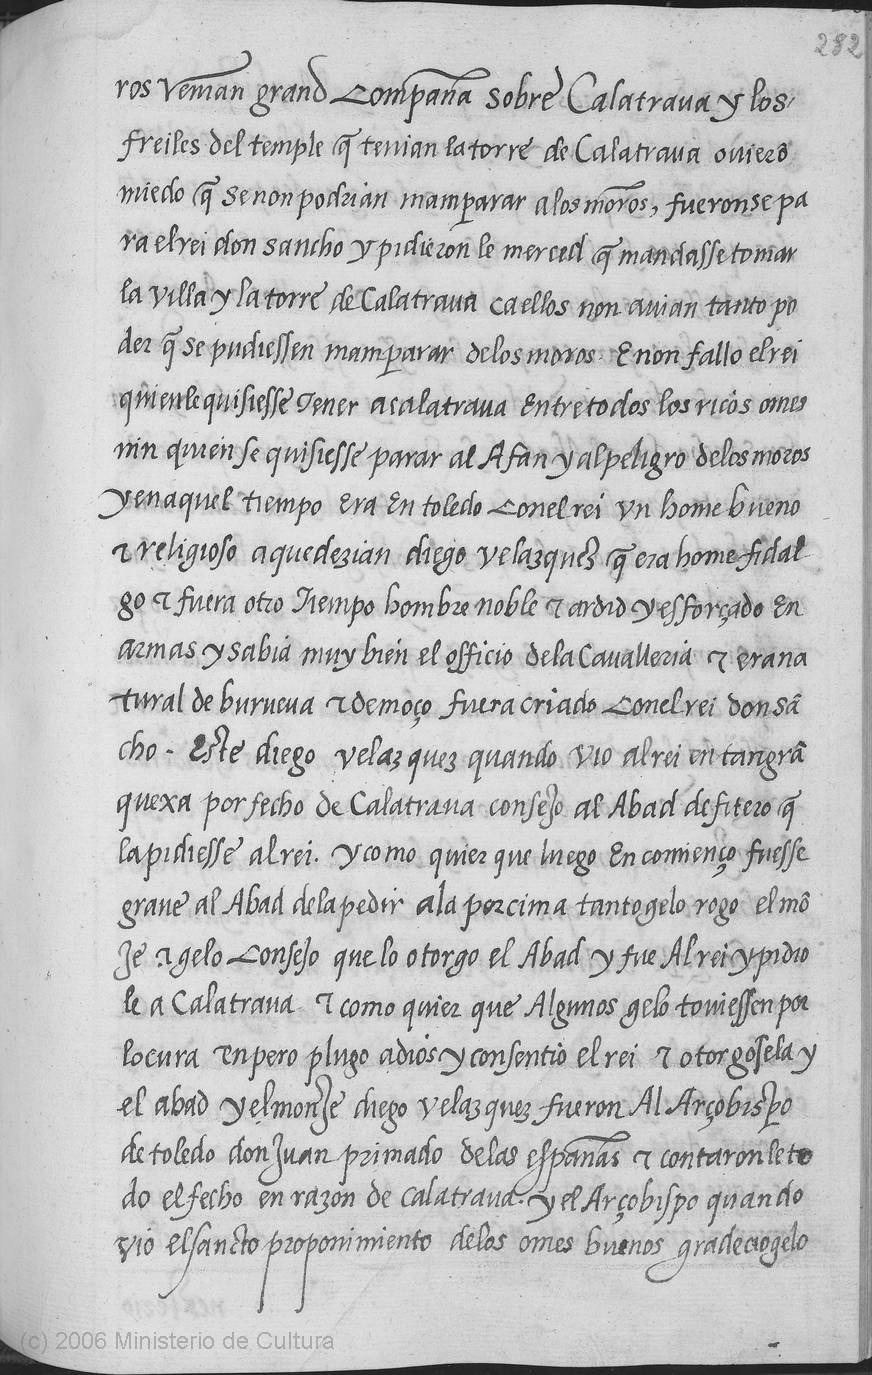 282
ros venian grand compañia sobre Calatraua y los
freiles del temple q̃ tenian la torre de Calatraua ouierõ
miedo q̃ se non podrian mamparar a los moros, fueronse pa
ra el rei don sancho y pidieron le merced q̃ mandasse tomar
la villa y la torre de Calatraua ca ellos non auian tanto po
der q̃ se pudiessen mamparar de los moros. E non fallo el rei
quien le quisiesse tener a calatraua entre todos los ricos omes
nin quien se quisiesse parar al Afan y al peligro de los moros
y en aquel tiempo era en toledo con el rei vn home bueno
⁊ religioso a que dezian diego velazquez q̃ era home fidal
go ⁊ fuera otro tiempo hombre noble ⁊ ardid y esforçado en
armas y sabia muy bien el officio de la Cavalleria ⁊ era na
tural de burueva ⁊ de moço fuera criado con el rei don sã
cho. Este diego velazquez quando vio al rei en tan grã
quexa por fecho de Calatraua consejo al Abad de fitero q̃
la pidiesse al rei. y como quier que luego en comienço fuesse
graue al Abad de la pedir a la por cima tanto gelo rogo el mõ
je ⁊ gelo consejo que lo otorgo el Abad y fue Al rei y pidio
le a Calatraua ⁊ como quier que Algunos gelo touiessen por
locura enpero plugo a dios y consentio el rei ⁊ otorgosela y
el abad y el monje diego velazquez fueron Al Arçobispo
de toledo don Juan primado de las españas ⁊ contaronle to
do el fecho en razon de calatraua. y el Arçobispo quando
vio el sancto proponimiento de los omes buenos gradeciogelo
(c) 2006 Ministerio de Cultura